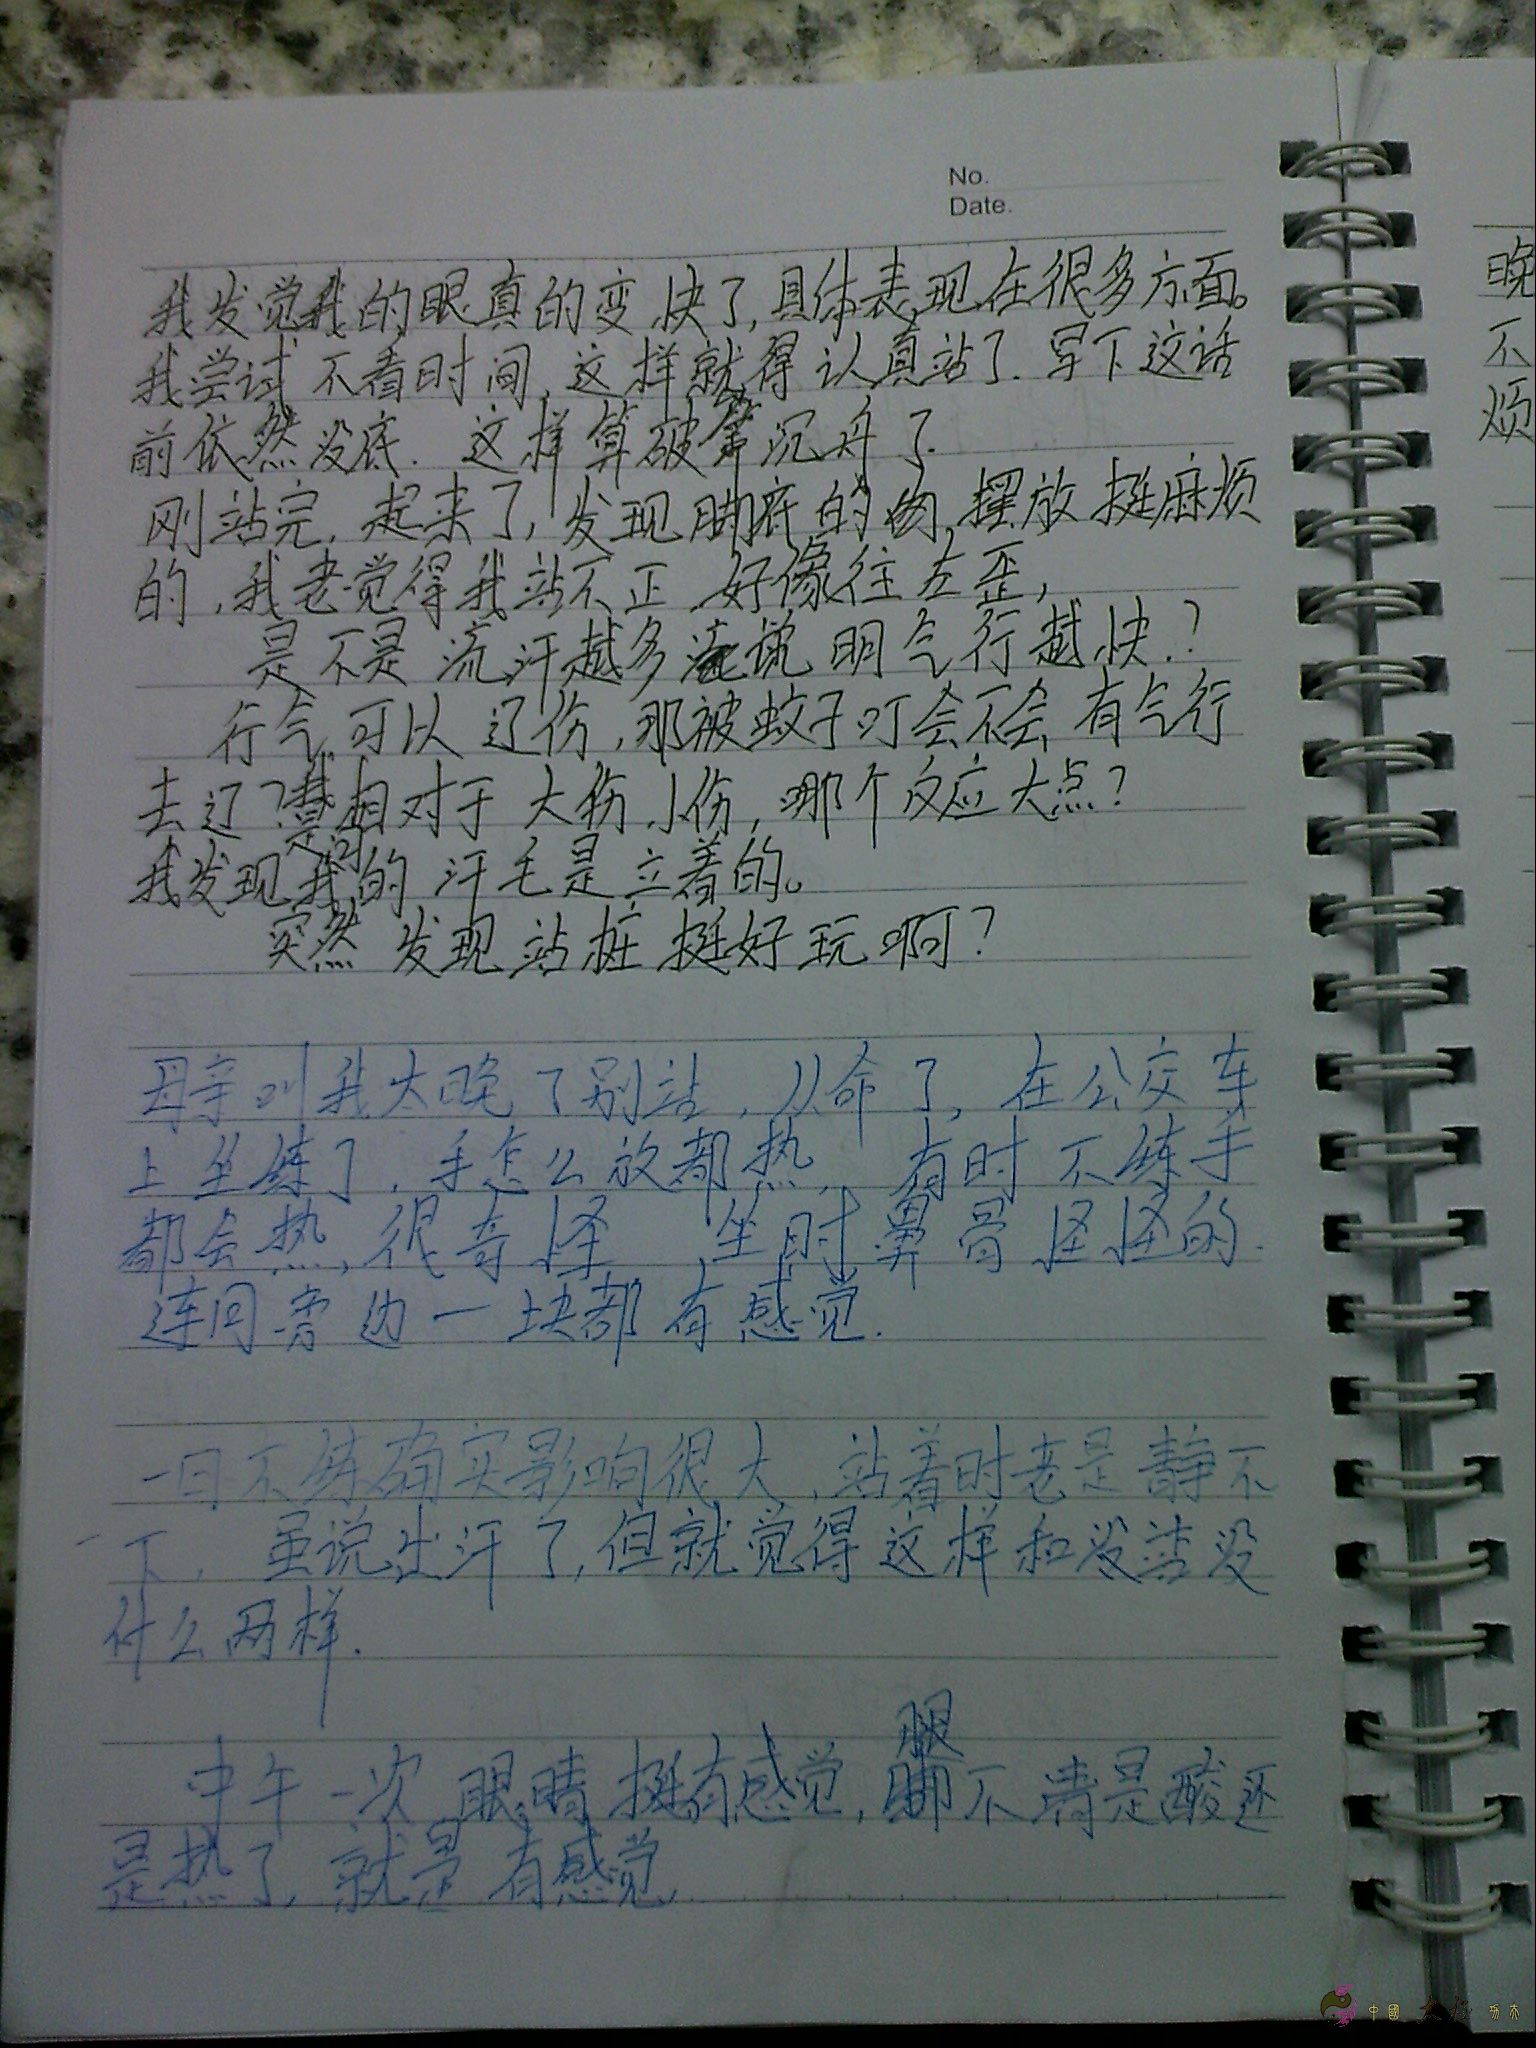 No.
Date.
我发觉我的眼真的变快了,具体表现在很多方面。
我尝试不看时间,这样就得认真站了.写下这话
前依然没底.这样算破釜沉舟了.
刚站完,起来了,发现脚底的肉摆放挺麻烦
的,我老觉得我站不正,好像往左歪,
是不是流汗越多说明气行越快?
行气可以辽伤,那被蚊子叮会不会有气行
去辽?相对于大伤小伤,哪个反应大点?
我发现我的汗毛是立着的。
突然发现站桩挺好玩啊?
母亲叫我太晚了别站,从命了,在公交车
上坐练了,手怎么放都热,有时不练手
都会热,很奇怪 坐时鼻骨怪怪的.
连同旁边一块都有感觉.
一日不练确实影响很大,站着时老是静不
下,虽说出汗了,但就觉得这样和没站没
什么两样.
中午一次眼睛挺有感觉,腿不清是酸还
是热了,就是有感觉
晚
不
烦
中國太极功夫